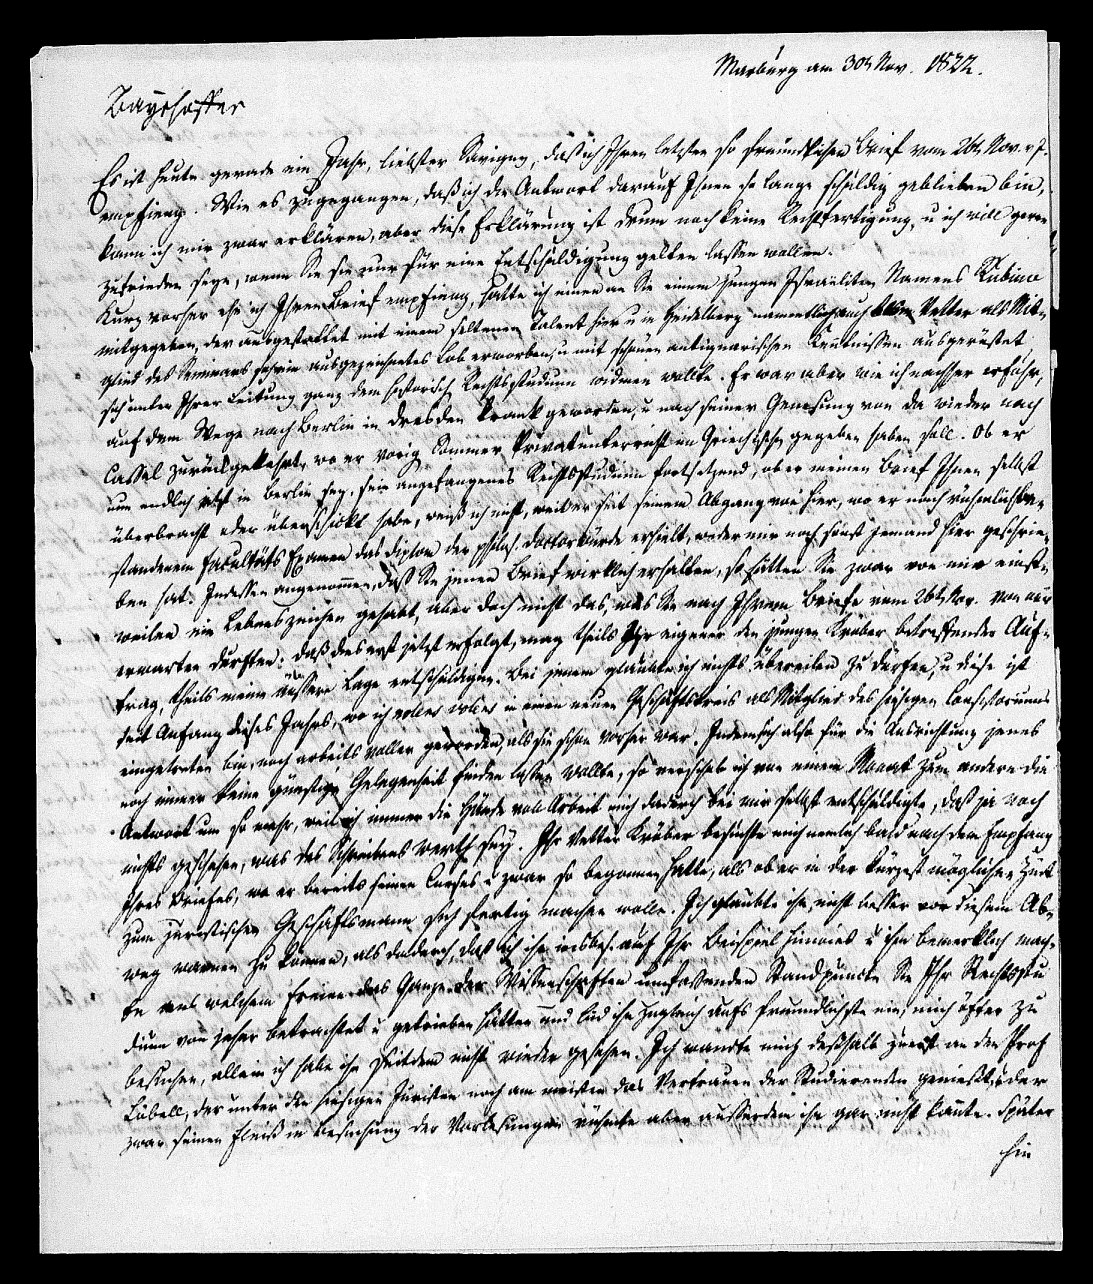 Marburg am 30t Nov. 1822.
Bayrhoffer
Es ist heute gerade ein Jahr, liebster Savigny, daß ich Ihren letzten so freundlichen Brief vom 26t Nov. v. J.
empfieng. Wie es zugegangen, daß ich die Antwort darauf Ihnen so lange schuldig geblieben bin,
kann ich mir zwar erklären, aber diese Erklärung ist drum noch keine Rechtfertigung, u ich will gerne
zufrieden seyn, wenn Sie sie nur für eine Entschuldigung gelten lassen wollen.
Kurz vorher ehe ich Ihren Brief empfieng, hatte ich einen an Sie einem jungen Israeliten Namens Rubino
mitgegeben, der ausgestattet mit einem seltenen Talent hier u in Heidelberg namentlich auch Vetter als Mit-
glied des Seminars sehr ausgezeichnetes Lob erworben, u mit schönen antiquarischen Kenntnissen ausgerüstet
sich unter Ihrer Leitung ganz dem historisch Rechtsstudium widmen wollte. Er war aber wie ich nachher erfuhr,
auf dem Wege nach Berlin in Dresden krank geworden, u nach seiner Genesung von da wieder nach
Cassel zurückgekehrt, wo er vorig Sommer Privatunterricht im Griechischen gegeben haben soll. Ob er
nun endlich jetzt in Berlin sey, sein angefangenes Rechtsstudium fortsetzend, ober meinen Brief Ihnen selbst
überbracht oder überschickt habe, weiß ich nicht, weil er seit seinem Abgang von hier, wo er nach rühmlichbe-
standenem Facultäts Examen das Diplom der philos. Doctorwürde erhielt, weder mir noch sonst jemand hier geschrie-
ben hat. Indessen angenommen, daß Sie jenen Brief wirklich erhalten, so hätten Sie zwar von mir einst-
weilen ein Lebenszeichen gehabt, aber doch nicht das, was Sie nach Ihrem Briefe vom 26t Nov. von mir
erwarten durften: daß dies erst jetzt erfolgt, mag theils Ihr eigener den jungen Kröber betreffender Auf-
trag, theils meine äußere Lage entschuldigen. Bei jenem glaubte ich nichts übereilen zu dürfen, u diese ist
seit Anfang dieses Jahrs, wo ich in einen neuen Geschäftskreis als Mitglied des hiesigen Consistoriums
eingetreten bin, noch arbeitsvoller geworden, als sie schon vorher war. Indem sich also für die Ausrichtung jenes
noch immer keine günstige Gelegenheit finden lassen wollte, so verschob ich von einem Monat zum andern die
Antwort um so mehr, weil ich immer die Hände voll Arbeit mich dadurch bei mir selbst entschuldigte, daß ja noch
nichts geschehen, was des Schreibens werth sey. Ihr Vetter Kröber besuchte mich nemlich bald nach dem Empfang
Ihres Briefes, wo er bereits seinen Cursus u zwar so begonnen hatte, als ob er in der kürzest möglichen Zeit
zum juristischen Geschäftsmann sich fertig machen wolle. Ich glaubte ihn, nicht besser vor diesem Ab-
weg warnen zu können, als dadurch, daß ich ihn insbes. auf Ihr Beispiel hinwies u ihm bemerklich mach-
te aus welchem freien das Ganze der Wissenschaften umfassenden Standpuncte Sie Ihr Rechtsstu
dium von jeher betrachtet u getrieben hätten und lud ihn zugleich aufs freundlichste ein, mich öfter zu
besuchen, allein ich habe ihn seitdem nicht wieder gesehen. Ich wandte mich deßhalb zuerst an den Prof
Löbell, der unter den hiesigen Juristen noch am meisten das Vertrauen der Studierenden genießt, u der
zwar seinen Fleiß in Besuchung der Vorlesungen rühmte aber ausserdem ihn gar nicht kannte. Später
hin